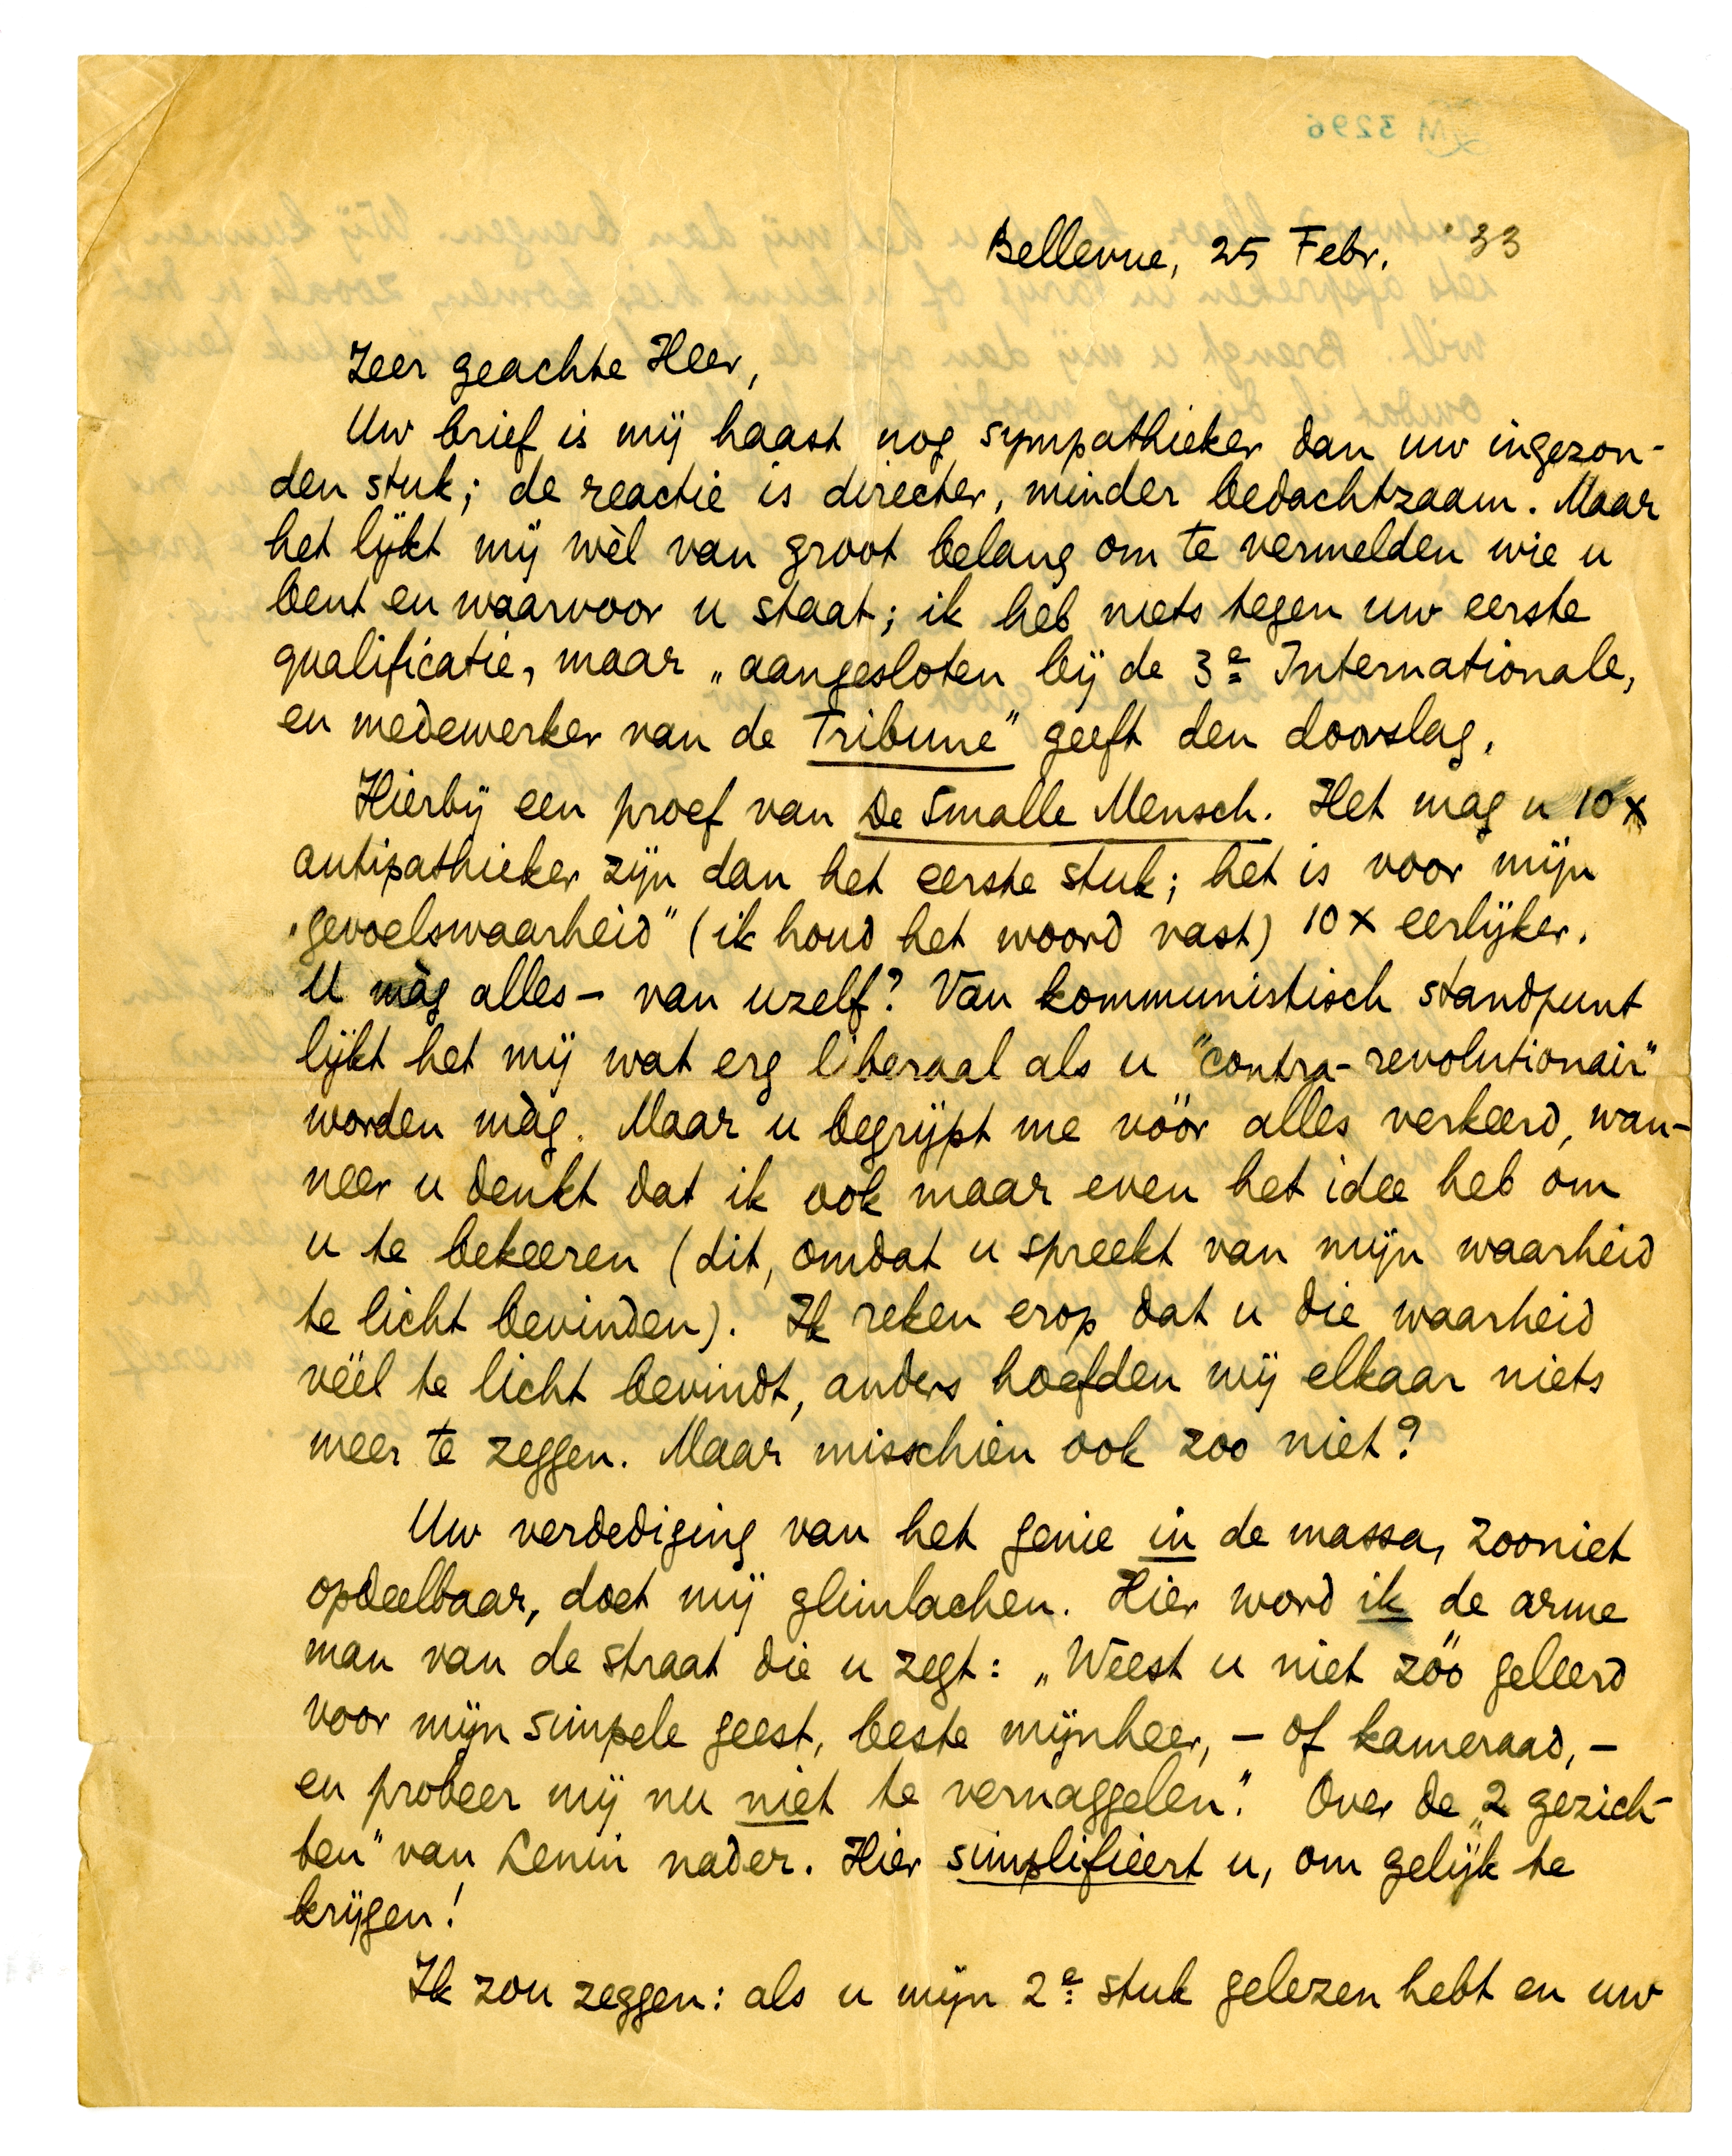 Bellevue, 25 Febr. '33
Zeer geachte Heer,
Uw brief is mij haast nog sympathieker dan uw ingezon-
den stuk; de reactie is directer, minder bedachtzaam. Maar
het lijkt mij wèl van groot belang om te vermelden wie u
bent en waarvoor u staat; ik heb niets tegen uw eerste
qualificatie, maar „aangesloten bij de 3e Internationale,
en medewerker van de Tribune" geeft den doorslag.
Hierbij een proef van De Smalle Mensch. Het mag u 10 x
antipathieker zijn dan het eerste stuk; het is voor mijn
„gevoelswaarheid" (ik houd het woord vast) 10 x eerlijker.
U màg alles – van uzelf? Van kommunistisch standpunt
lijkt het mij wat erg liberaal als u "contra-revolutionair"
worden màg. Maar u begrijpt me vóór alles verkeerd, wan-
neer u denkt dat ik ook maar even het idee heb om
u te bekeeren (dit, omdat u spreekt van mijn waarheid
te licht bevinden). Ik reken erop dat u die waarheid
véél te licht bevindt, anders hoefden wij elkaar niets
meer te zeggen. Maar misschien ook zoo niet?
Uw verdediging van het genie in de massa, zooniet
opdeelbaar, doet mij glimlachen. Hier word ik de arme
man van de straat die u zegt: „Weest u niet zóó geleerd
voor mijn simpele geest, beste mijnheer, – of kameraad, –
en probeer mij nu niet te vernaggelen." Over de „2 gezich-
ten" van Lenin nader. Hier simplifieert u, om gelijk te
krijgen!
Ik zou zeggen: als u mijn 2e stuk gelezen hebt en uw